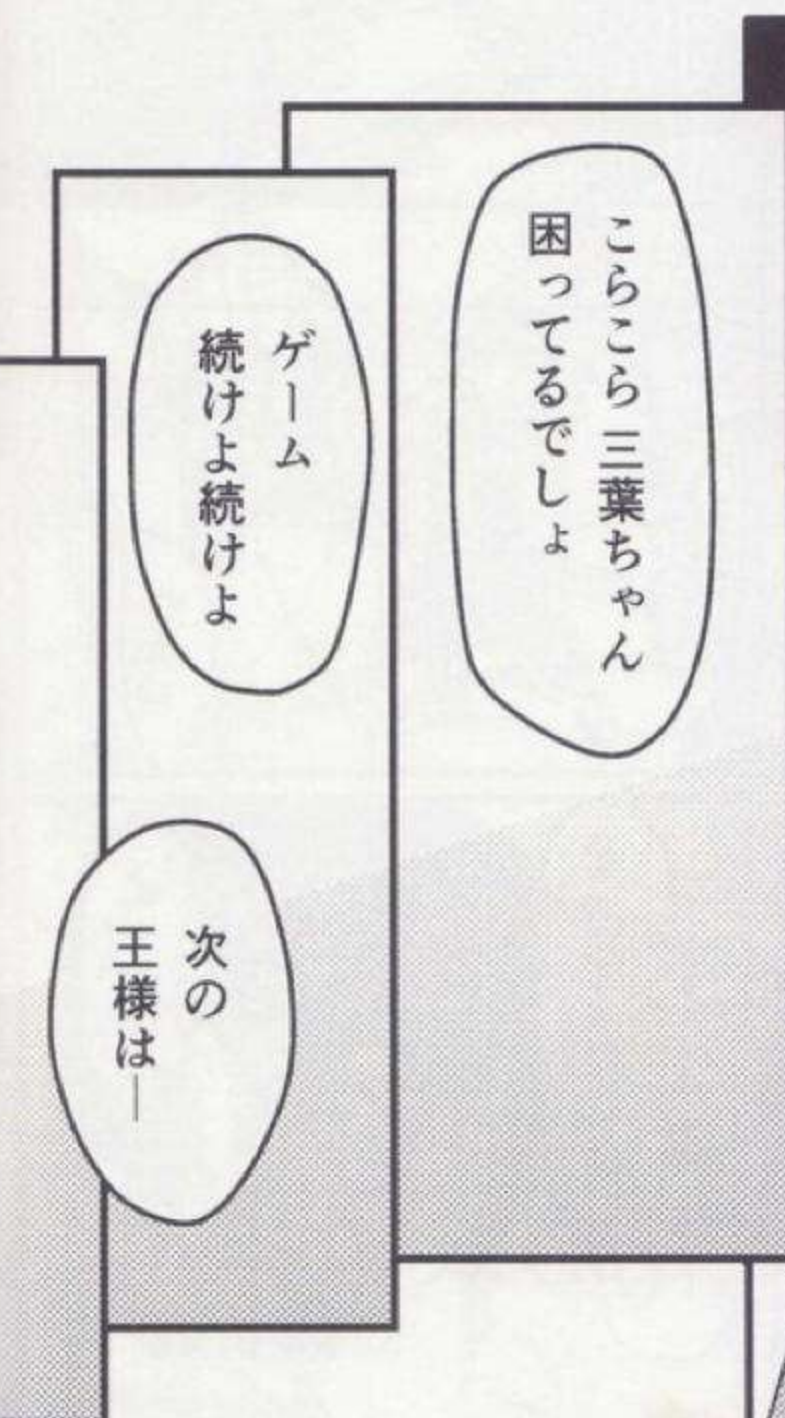 こらこら 三葉ちゃん
困ってるでしょ
ゲーム
続けよ続けよ
次の
王様は―